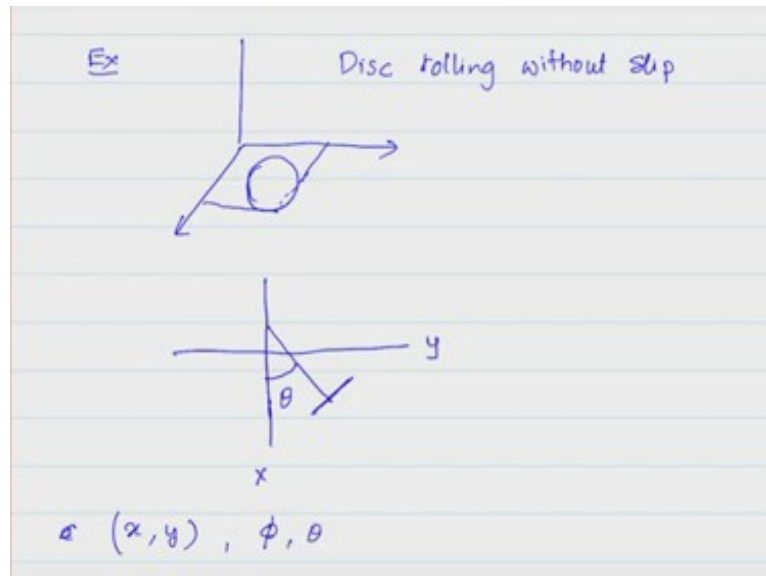 Ex
Disc rolling without slip
y
θ
x
(x, y), φ, θ